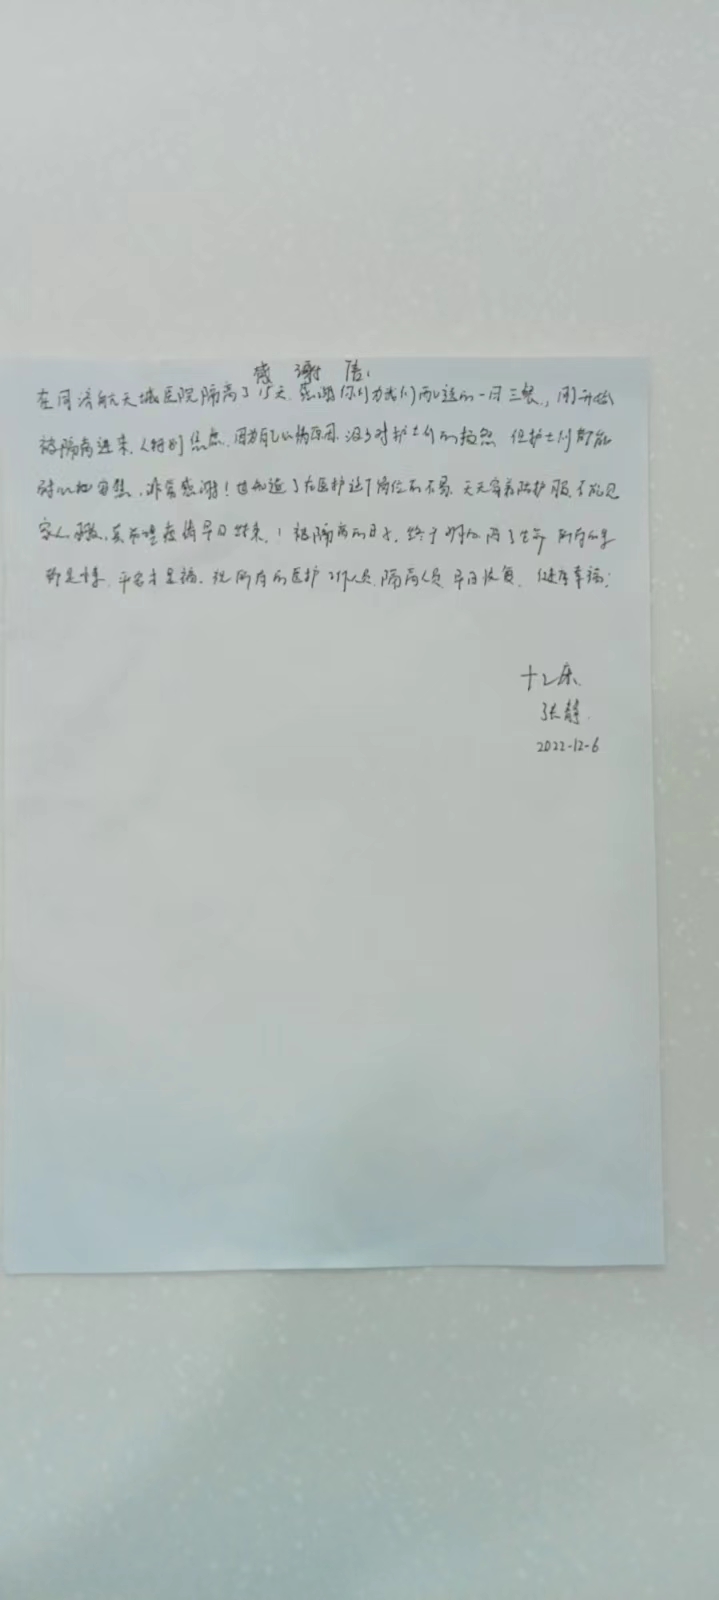 感谢信:
在同济航天城医院隔离了15天.感谢你们为我们所送的一日三餐,刚开始
被隔离进来,人特别焦虑,因为自己心病原因,没少对护士们的抱怨 但护士们都能
耐心地安慰,非常感谢!也知道了在医护这个岗位的不易,天天穿着防护服,不能见
家人.真希望疫情早日结束,!被隔离的日子,终于明白除了生命 所有的事
都是小事.平安才是福.祝所有的医护工作人员,隔离人员 早日恢复、健康幸福!
十二床
张静
2022-12-6